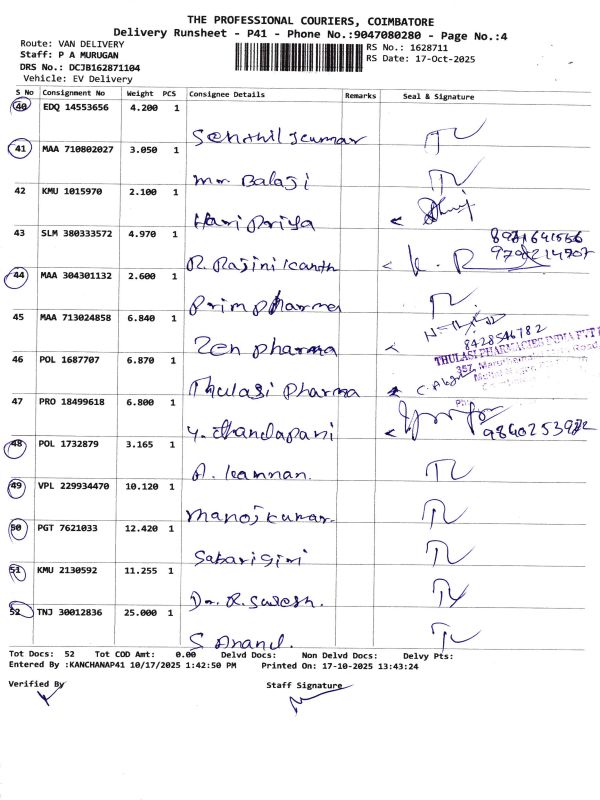 THE PROFESSIONAL COURIERS, COIMBATORE
Delivery Runsheet - P41 - Phone No.:9047080280 - Page No.:4
Route: VAN DELIVERY
Staff: P A MURUGAN
DRS No.: DCJB162871104
Vehicle: EV Delivery
RS No.: 1628711
RS Date: 17-Oct-2025
S No Consignment No Weight PCS Consignee Details Remarks Seal & Signature
40 EDQ 14553656 4.200 1
Senthil kumar TL
41 MAA 710802027 3.050 1
Mr. Balaji TL
42 KMU 1015970 2.100 1
Hari Priya
43 SLM 380333572 4.970 1
R. Rajini kanth
44 MAA 304301132 2.600 1
Prim pharma TL
45 MAA 713024858 6.840 1
Zen pharma
8428546782
46 POL 1687707 6.870 1
Thulasi pharma
THULASI PHARMACIES INDIA PVT
47 PRO 18499618 6.800 1
Y. dhandapani
48 POL 1732879 3.165 1
A. kannan. TL
49 VPL 229934470 10.120 1
Manoj kumar. TL
50 PGT 7621033 12.420 1
Sabarigiri TL
51 KMU 2130592 11.255 1
Dr. R. Suresh. TL
52 TNJ 30012836 25.000 1
S Anand. TL
Tot Docs: 52 Tot COD Amt: 0.00 Delvd Docs: Non Delvd Docs: Delvy Pts:
Entered By :KANCHANAP41 10/17/2025 1:42:50 PM Printed On: 17-10-2025 13:43:24
Verified By Staff Signature